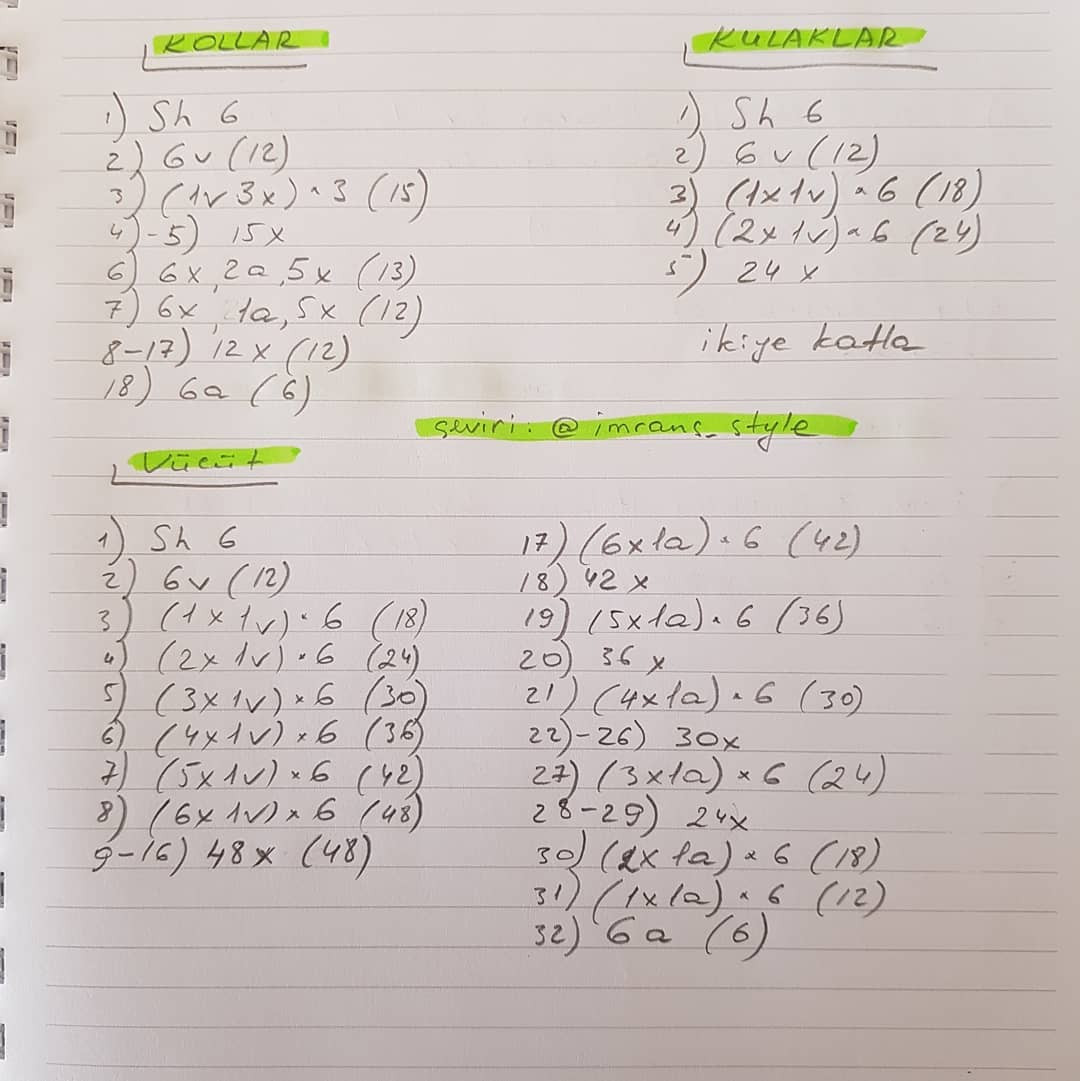 KOLLAR
1) Sh 6
2) 6v (12)
3) (1v 3x) * 3 (15)
4)-5) 15x
6) 6x, 2a, 5x (13)
7) 6x, 1a, 5x (12)
8-17) 12x (12)
18) 6a (6)
KULAKLAR
1) Sh 6
2) 6v (12)
3) (1x 1v) * 6 (18)
4) (2x 1v) * 6 (24)
5) 24 x
ikiye katla
çeviri: @imrans_style
Vücüt
1) Sh 6
2) 6v (12)
3) (1x 1v) * 6 (18)
4) (2x 1v) * 6 (24)
5) (3x 1v) * 6 (30)
6) (4x 1v) * 6 (36)
7) (5x 1v) * 6 (42)
8) (6x 1v) * 6 (48)
9-16) 48x (48)
17) (6x 1a) * 6 (42)
18) 42 x
19) (5x 1a) * 6 (36)
20) 36 x
21) (4x 1a) * 6 (30)
22)-26) 30x
27) (3x 1a) * 6 (24)
28-29) 24x
30) (2x 1a) * 6 (18)
31) (1x 1a) * 6 (12)
32) 6a (6)